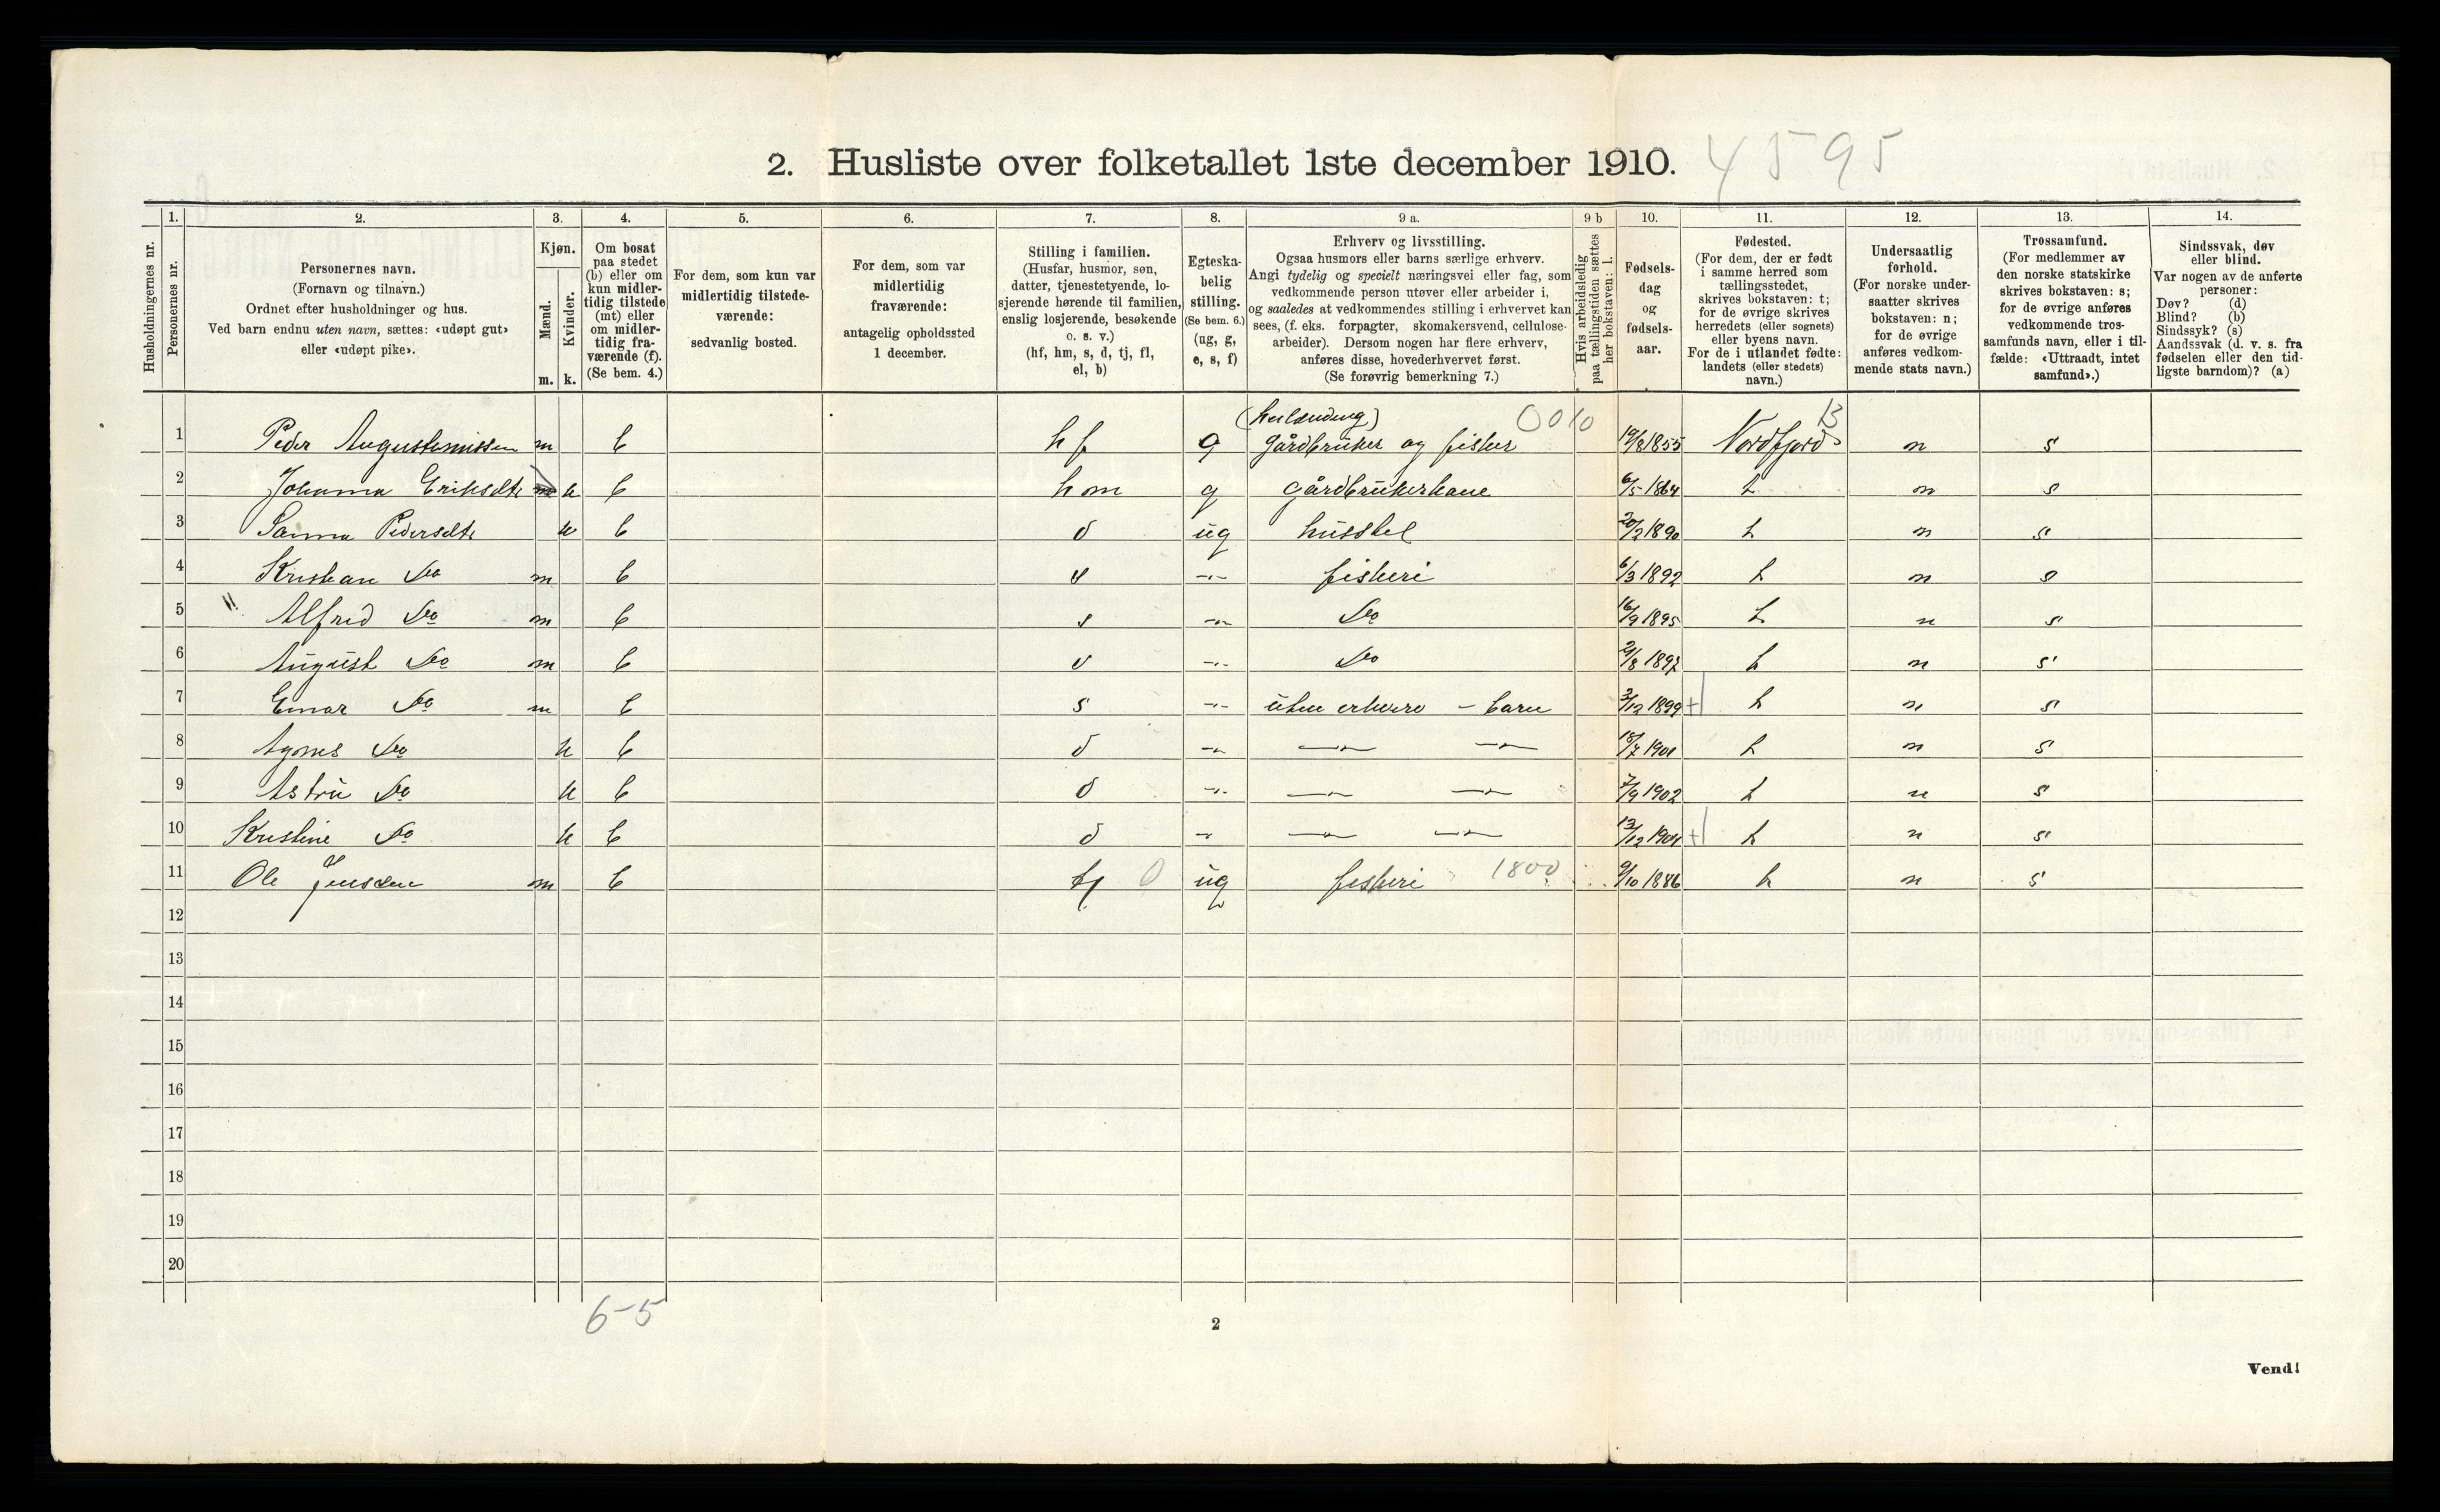 2. Husliste over folketallet 1ste december 1910. 4595
Husholdningernes nr.
1.
Personernes nr.
2.
Personernes navn.
(Fornavn og tilnavn.)
Ordnet efter husholdninger og hus.
Ved barn endnu uten navn, sættes: «udøpt gut»
eller «udøpt pike».
3.
Kjøn.
Mænd.
Kvinder.
m. k.
4.
Om bosat
paa stedet
(b) eller om
kun midler-
tidig tilstede
(mt) eller
om midler-
tidig fra-
værende (f).
(Se bem. 4.)
5.
For dem, som kun var
midlertidig tilstede-
værende:
sedvanlig bosted.
6.
For dem, som var
midlertidig
fraværende:
antagelig opholdssted
1 december.
7.
Stilling i familien.
(Husfar, husmor, søn,
datter, tjenestetyende, lo-
sjerende hørende til familien,
enslig losjerende, besøkende
o. s. v.)
(hf, hm, s, d, tj, fl,
el, b)
8.
Egteska-
belig
stilling.
(Se bem. 6.)
(ug, g,
e, s, f)
9 a.
Erhverv og livsstilling.
Ogsaa husmors eller barns særlige erhverv.
Angi tydelig og specielt næringsvei eller fag, som
vedkommende person utøver eller arbeider i,
og saaledes at vedkommendes stilling i erhvervet kan
sees, (f. eks. forpagter, skomakersvend, cellulose-
arbeider). Dersom nogen har flere erhverv,
anføres disse, hovederhvervet først.
(Se forøvrig bemerkning 7.)
9 b
Hvis arbeidsledig
paa tællingstiden sættes
her bokstaven: l.
10.
Fødsels-
dag
og
fødsels-
aar.
11.
Fødested.
(For dem, der er født
i samme herred som
tællingsstedet,
skrives bokstaven: t;
for de øvrige skrives
herredets (eller sognets)
eller byens navn.
For de i utlandet fødte:
landets (eller stedets)
navn.)
12.
Undersaatlig
forhold.
(For norske under-
saatter skrives
bokstaven: n;
for de øvrige
anføres vedkom-
mende stats navn.)
13.
Trossamfund.
(For medlemmer av
den norske statskirke
skrives bokstaven: s;
for de øvrige anføres
vedkommende tros-
samfunds navn, eller i til-
fælde: «Uttraadt, intet
samfund».)
14.
Sindssvak, døv
eller blind.
Var nogen av de anførte
personer:
Døv? (d)
Blind? (b)
Sindssyk? (s)
Aandssvak (d. v. s. fra
fødselen eller den tid-
ligste barndom)? (a)
0010 B
1 Peder m b hf g Gårdbruker og fisker 19/8 1855 Nordfjord n s
2 Johanna Eriksdtr k b hm g Gårdbrukerkone 6/5 1864 t n s
3 Sanna Pedersdtr k b d ug husstel 20/2 1890 t n s
4 Kristian Do m b s -"- fiskeri 6/3 1892 t n s
5 Alfred Do m b s -"- Do 16/9 1895 t n s
6 August Do m b s -"- Do 8 1897 t n s
7 Einar Do m b s -"- uten erhverv - barn 3/12 1899 + t n s
8 Agnes Do k b d -"- -"- -"- 18/7 1901 t n s
9 Do k b d -"- -"- -"- 7/9 1902 t n s
10 Kristine Do k b d -"- -"- -"- 13/12 1904 + t n s
11 Ole Jensen m b tj 0 ug fiskeri 1800 9/10 1886 t n s
12
13
14
15
16
17
18
19
20
6-5
2
Vend!